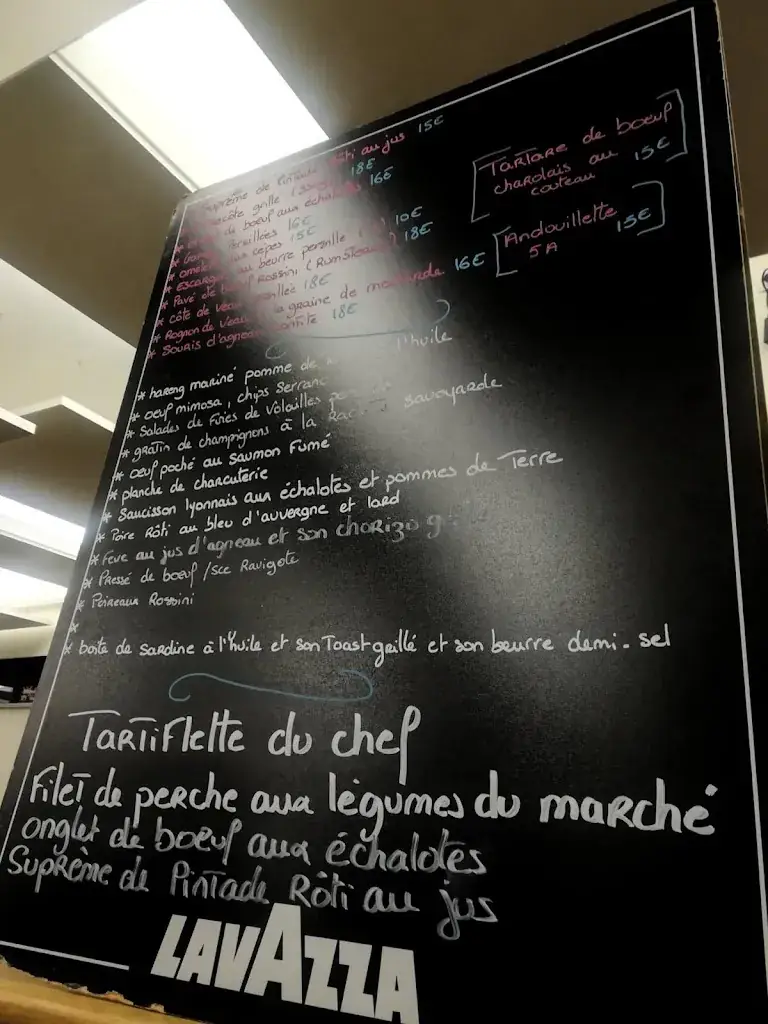 Suprême de Pintade Rôti au jus 15€
grillé 18€
de boeuf aux échalotes 16€
16€
cèpes 15€
* Escargots au beurre persillé 10€
* Pavé de boeuf Rossini (Rumsteack) 18€
* côte de veau 18€
* Rognon de veau graine de moutarde 16€
* Souris d'agneau confite 18€
Tartare de boeuf
charolais au
couteau 15€
Andouillette
5A 15€
* hareng mariné pomme de l'huile
* oeuf mimosa, chips Serrano
* Salades de Foies de Volailles
* gratin de champignons à la savoyarde
* oeuf poché au Saumon Fumé
* planche de charcuterie
* Saucisson lyonnais aux échalotes et pommes de Terre
* Poire Rôti au bleu d'auvergne et lard
* Feve au jus d'agneau et son chorizo
* Pressé de boeuf /sce Ravigote
* Poireaux Rossini
*
* boite de sardine à l'huile et son Toast grillé et son beurre demi-sel
Tartiflette du chef
Filet de perche aux légumes du marché
onglet de boeuf aux échalotes
Suprême de Pintade Rôti au jus
LAVAZZA